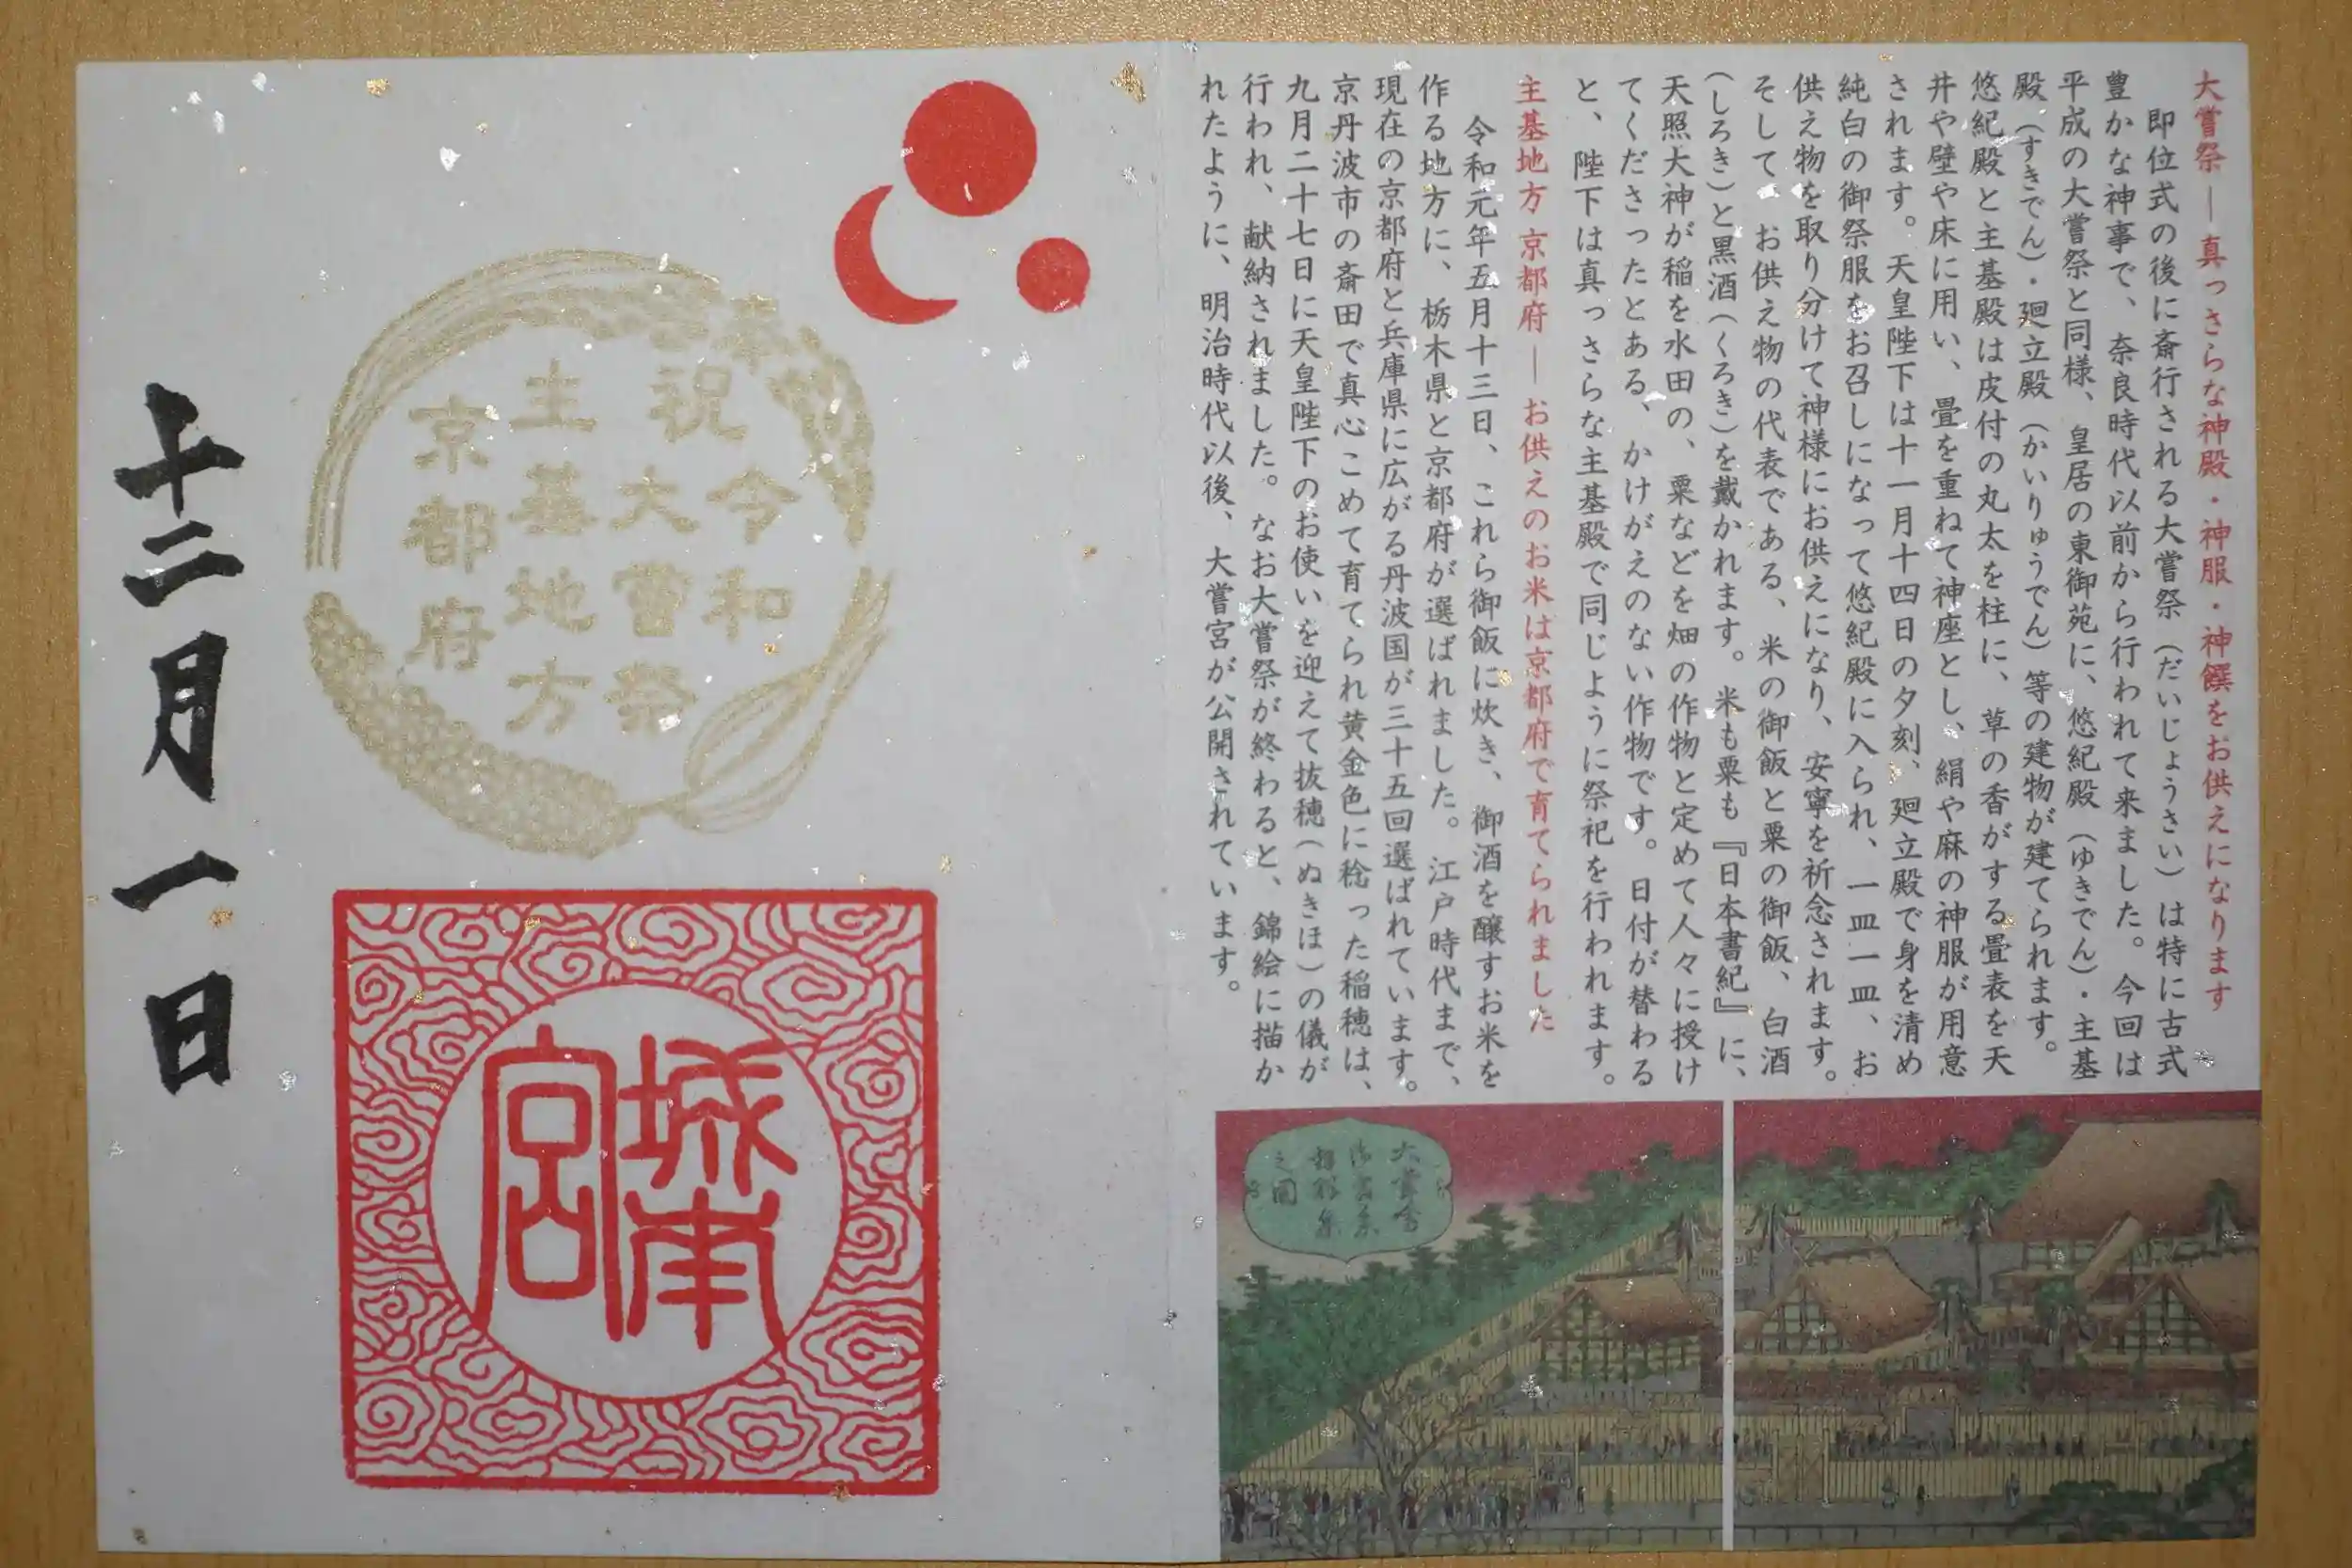 大嘗祭―真っさらな神殿・神服・神饌をお供えになります
即位式の後に斎行される大嘗祭（だいじょうさい）は特に古式
豊かな神事で、奈良時代以前から行われて来ました。今回は
平成の大嘗祭と同様、皇居の東御苑に、悠紀殿（ゆきでん）・主基
殿（すきでん）・廻立殿（かいりゅうでん）等の建物が建てられます。
悠紀殿と主基殿は皮付の丸太を柱に、草の香がする畳表を天
井や壁や床に用い、畳を重ねて神座とし、絹や麻の神服が用意
されます。天皇陛下は十一月十四日の夕刻、廻立殿で身を清め
純白の御祭服をお召しになって悠紀殿に入られ、一皿一皿、お
供え物を取り分けて神様にお供えになり、安寧を祈念されます。
そして、お供え物の代表である、米の御飯と粟の御飯、白酒
（しろき）と黒酒（くろき）を戴かれます。米も粟も『日本書紀』に、
天照大神が稲を水田の、粟などを畑の作物と定めて人々に授け
てくださったとある、かけがえのない作物です。日付が替わる
と、陛下は真っさらな主基殿で同じように祭祀を行われます。
主基地方 京都府―お供えのお米は京都府で育てられました
令和元年五月十三日、これら御飯に炊き、御酒を醸すお米を
作る地方に、栃木県と京都府が選ばれました。江戸時代まで、
現在の京都府と兵庫県に広がる丹波国が三十五回選ばれています。
京丹波市の斎田で真心こめて育てられ黄金色に稔った稲穂は、
九月二十七日に天皇陛下のお使いを迎えて抜穂（ぬきほ）の儀が
行われ、献納されました。なお大嘗祭が終わると、錦絵に描か
れたように、明治時代以後、大嘗宮が公開されています。
祝令和
大嘗祭
主基地方
京都府
城南
宮
十二月一日